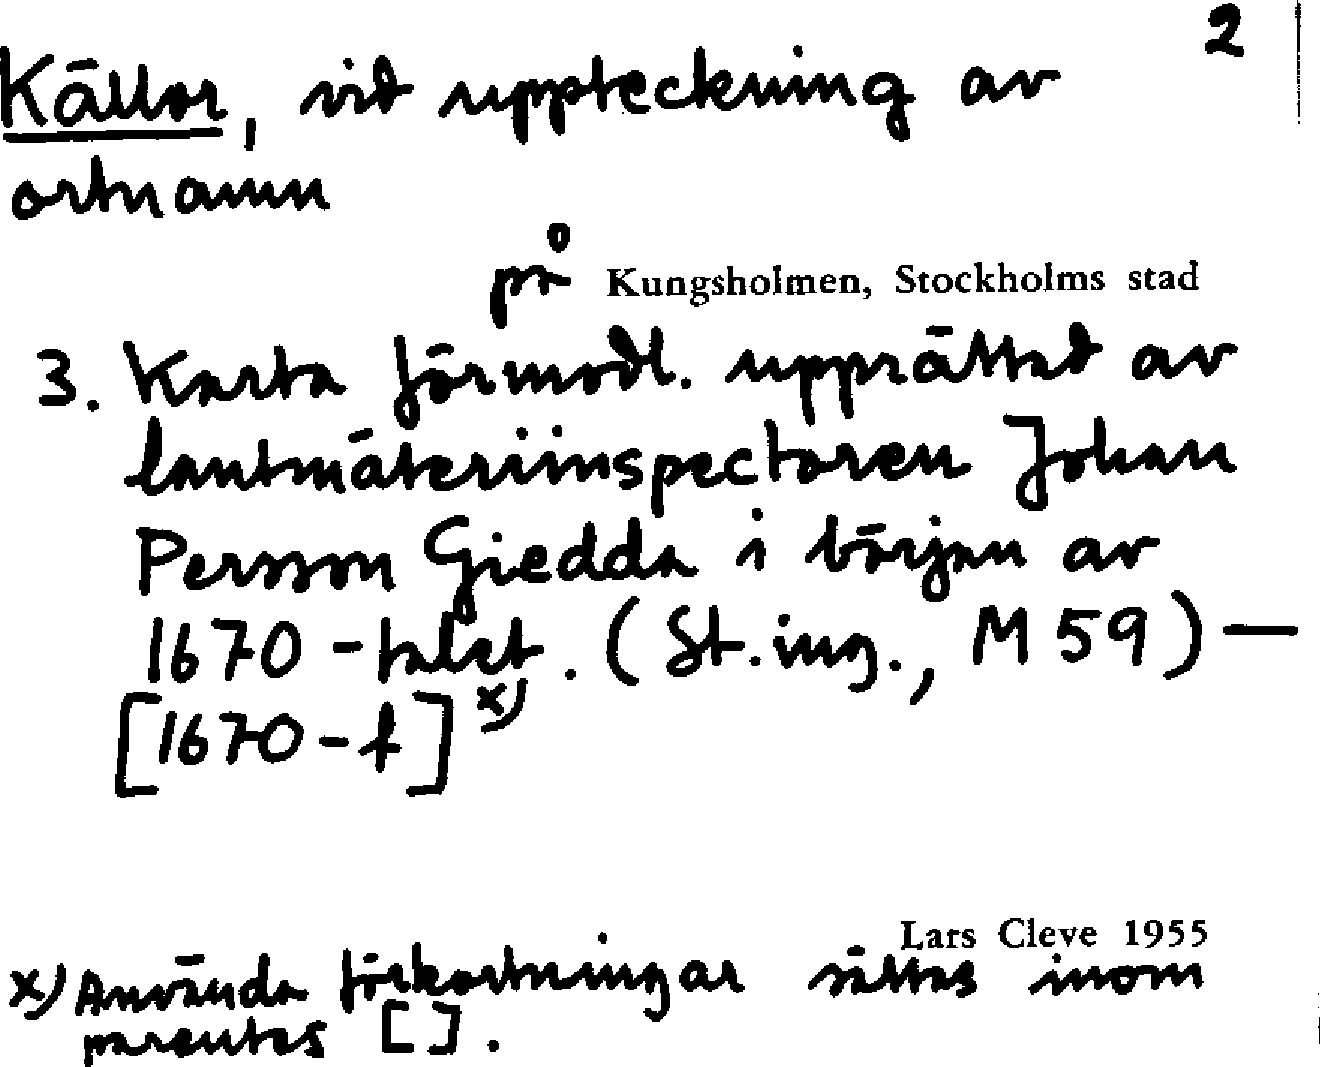 2
Källor, vid uppteckning av
ortnamn
på Kungsholmen, Stockholms stad
3. Karta förmodl. upprättad av
lantmäteriinspectoren Johan
Persson Giedda i början av
1670-talet. (St.ing., M 59) —
[1670-t] x)
Lars Cleve 1955
x) Använda förkortningar sättas inom
parentes [ ].